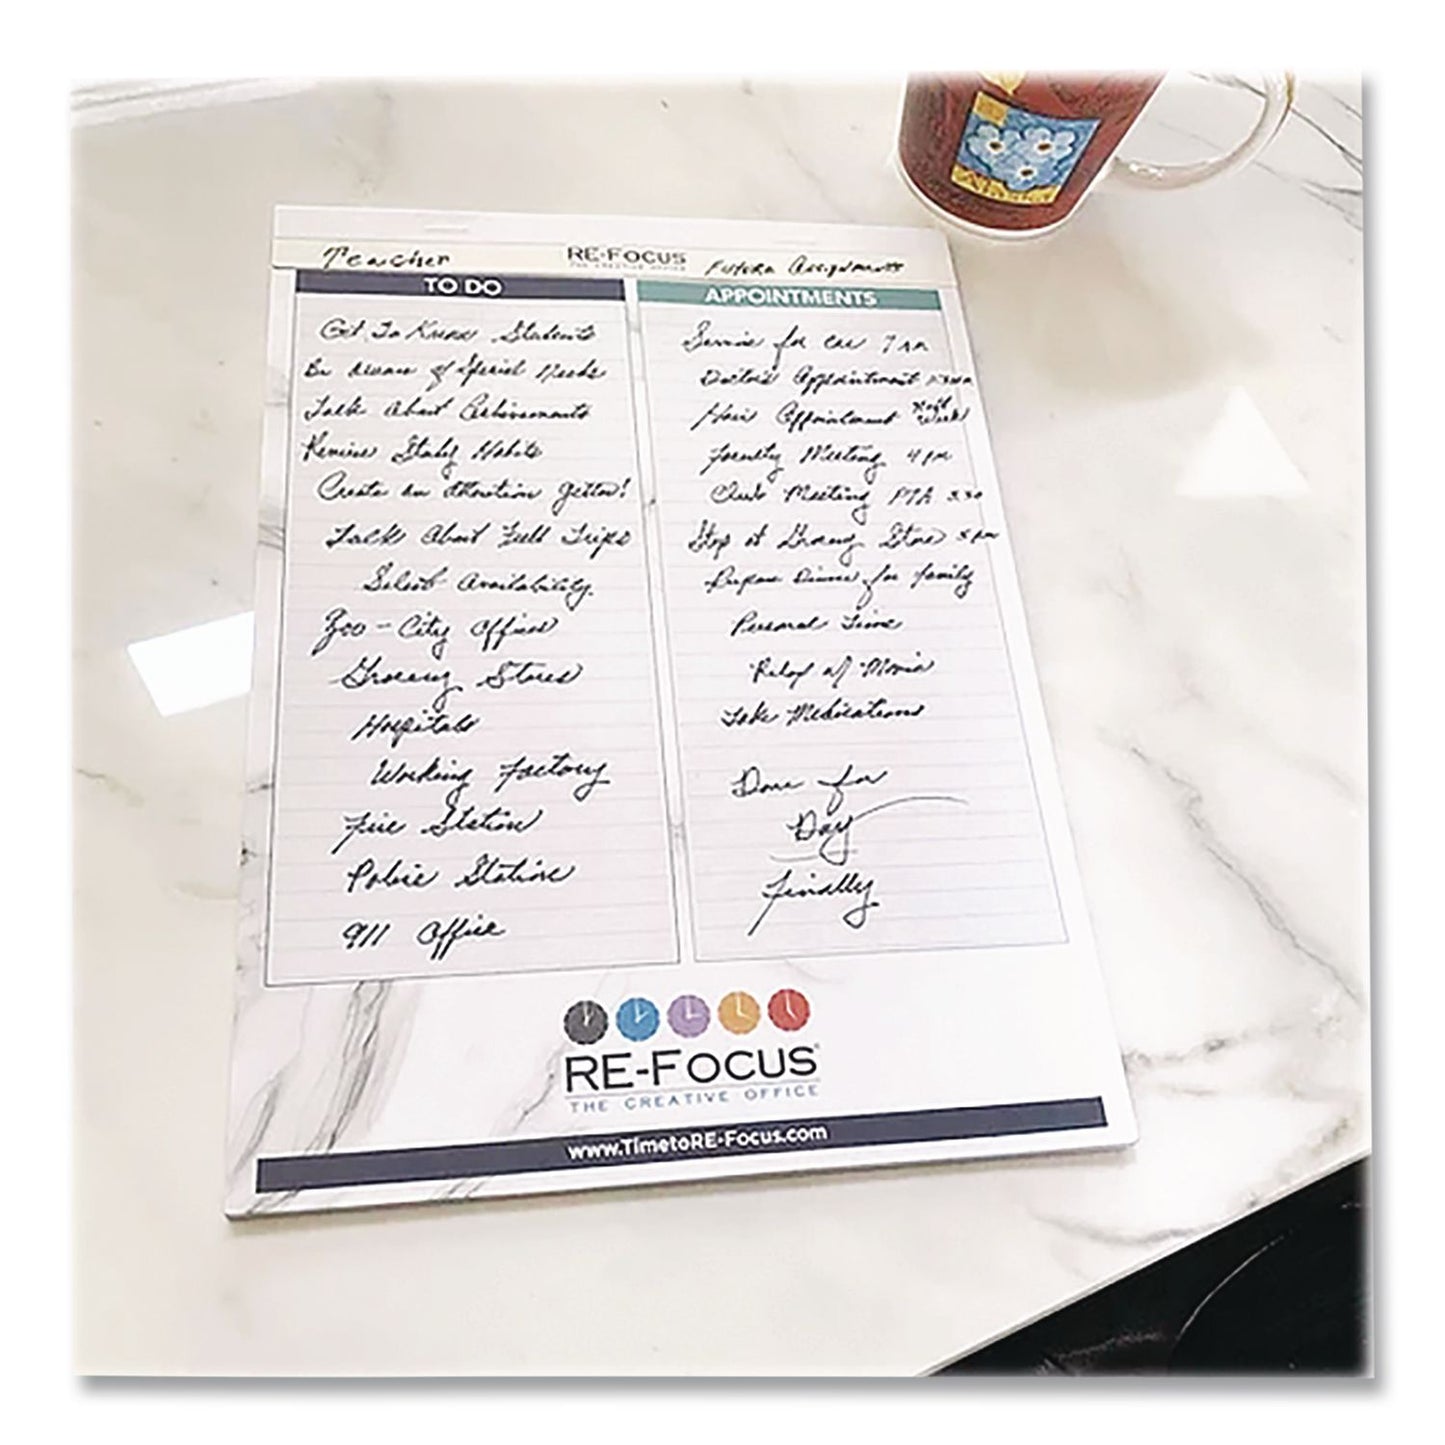 Teacher
RE-FOCUS
THE CREATIVE OFFICE
Future Assignments
TO DO
Get To Know Students
Be aware of Special Needs
Talk About Achievements
Review Study Habits
Create an attention getter!
Talk About Field Trips
Select Availability
Zoo - City Offices
Grocery Stores
Hospitals
Working Factory
Fire Station
Police Station
911 Office
APPOINTMENTS
Service for car 7 AM
Doctor's Appointment
Hair Appointment Next Week
Faculty Meeting 4 pm
Club Meeting PTA 3:30
Stop at Grocery Store 5 pm
Prepare Dinner for family
Personal Time
Relax w/ Movie
Take Medications
Done for
Day
Finally
RE-FOCUS
THE CREATIVE OFFICE
www.TimetoRE-Focus.com